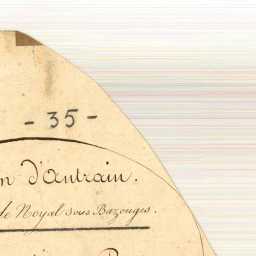 - 35 -
n d'Antrain.
de Noyal sous Bazouges.